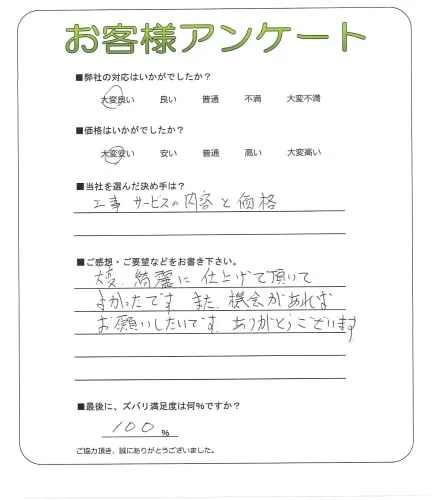 お客様アンケート
■弊社の対応はいかがでしたか?
大変良い 良い 普通 不満 大変不満
■価格はいかがでしたか?
大変安い 安い 普通 高い 大変高い
■当社を選んだ決め手は?
工事サービスの内容と価格
■ご感想・ご要望などをお書き下さい。
大変、綺麗に仕上げて頂いて
よかったです。また、機会があれば
お願いしたいです。ありがとうございます
■最後に、ズバリ満足度は何%ですか?
100%
ご協力頂き、誠にありがとうございました。